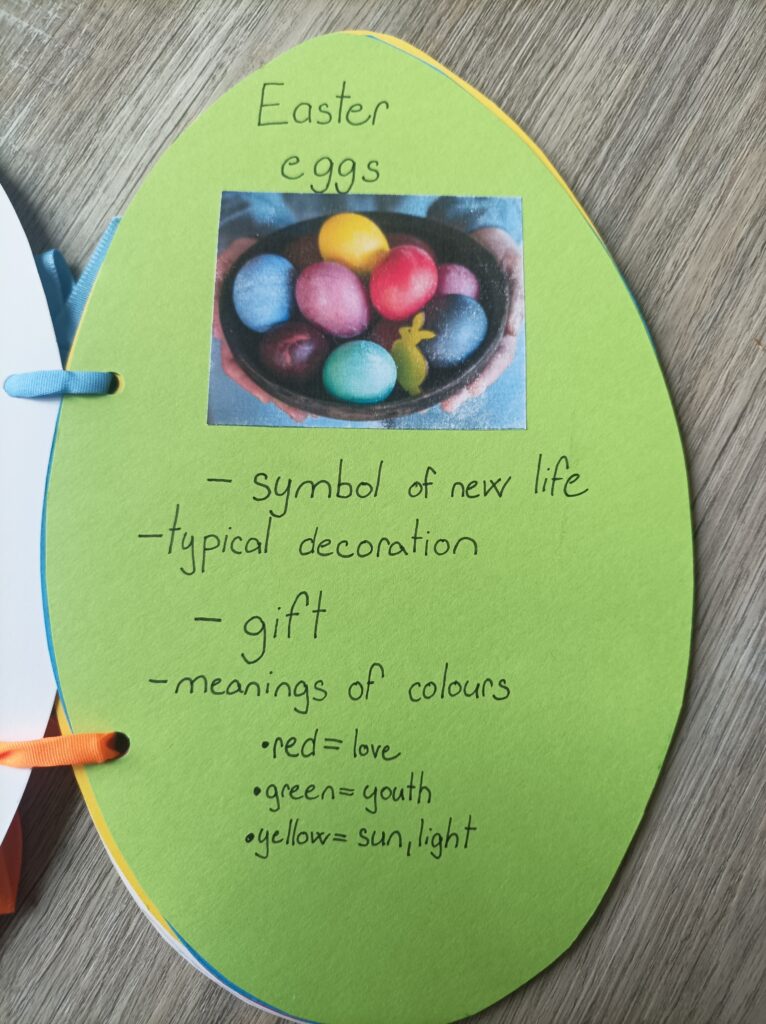 Easter
eggs
- symbol of new life
- typical decoration
- gift
- meanings of colours
• red = love
• green = youth
• yellow = sun, light